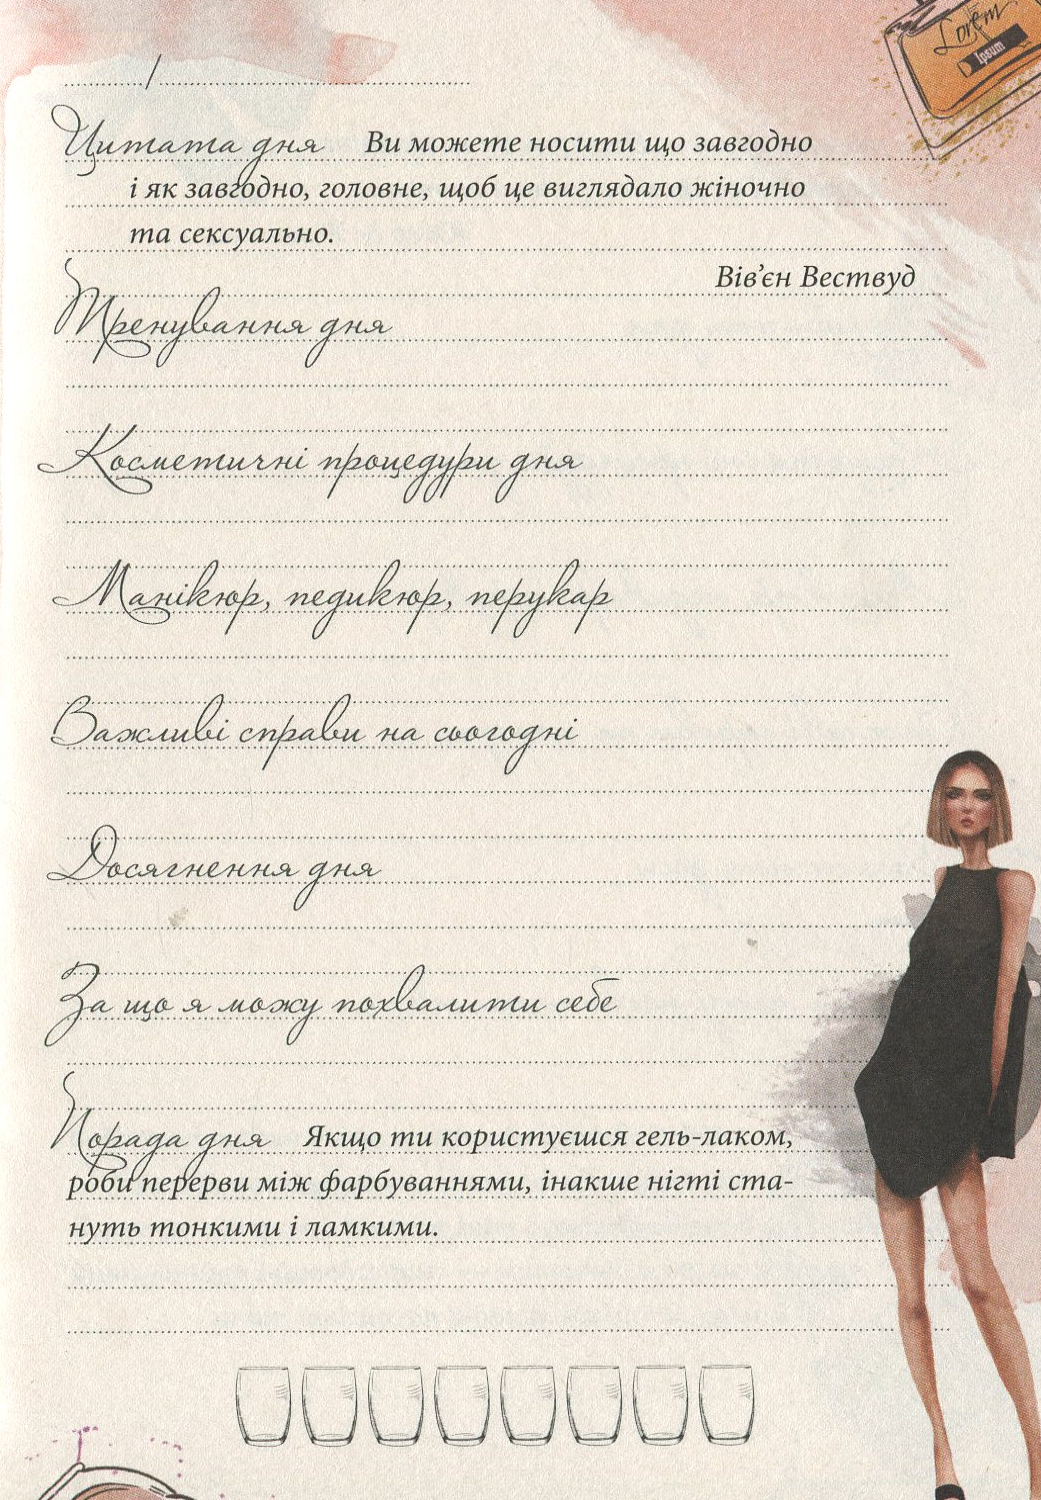 Lorem
Ipsum
/
Цитата дня Ви можете носити що завгодно
і як завгодно, головне, щоб це виглядало жіночно
та сексуально.
Вів’єн Вествуд
Тренування дня
Косметичні процедури дня
Манікюр, педикюр, перукар
Важливі справи на сьогодні
Досягнення дня
За що я можу похвалити себе
Порада дня Якщо ти користуєшся гель-лаком,
роби перерви між фарбуваннями, інакше нігті ста-
нуть тонкими і ламкими.